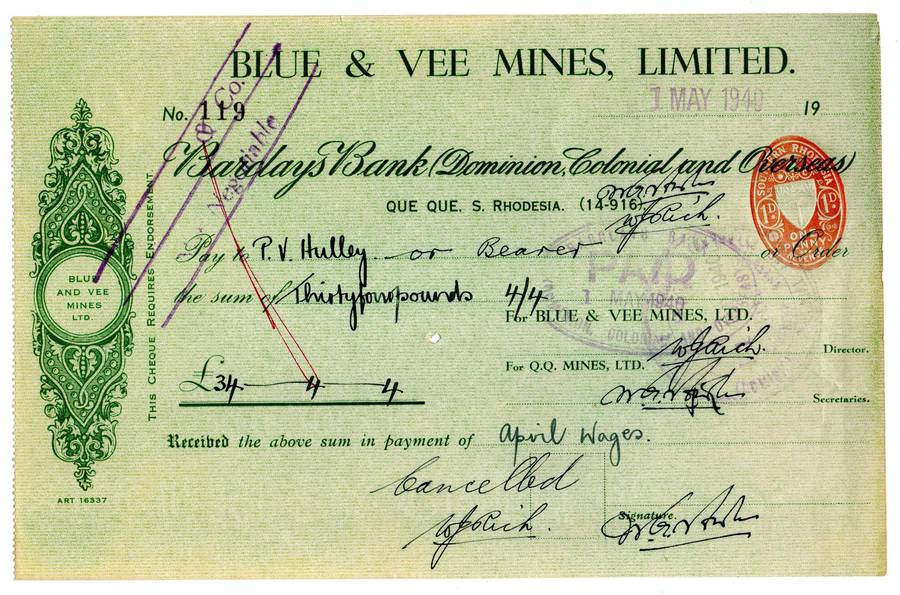 BLUE & VEE MINES, LIMITED.
& Co.
Negotiable
No. 119
1 MAY 1940 19
Barclays Bank (Dominion, Colonial and Overseas)
SOUTHERN RHODESIA
1D 1D
ONE PENNY
QUE QUE, S. RHODESIA. (14-916)
W J Rich.
Pay to P. V. Hulley or Bearer or Order
PAID
1 MAY 1940
the sum of Thirtyfourpounds 4/4
For BLUE & VEE MINES, LTD.
W J Rich. Director.
For Q.Q. MINES, LTD.
Secretaries.
£34 — 4 — 4
Received the above sum in payment of April Wages.
Cancelled
W J Rich.
Signature.
BLUE
AND VEE
MINES
LTD.
THIS CHEQUE REQUIRES ENDORSEMENT
ART 16337